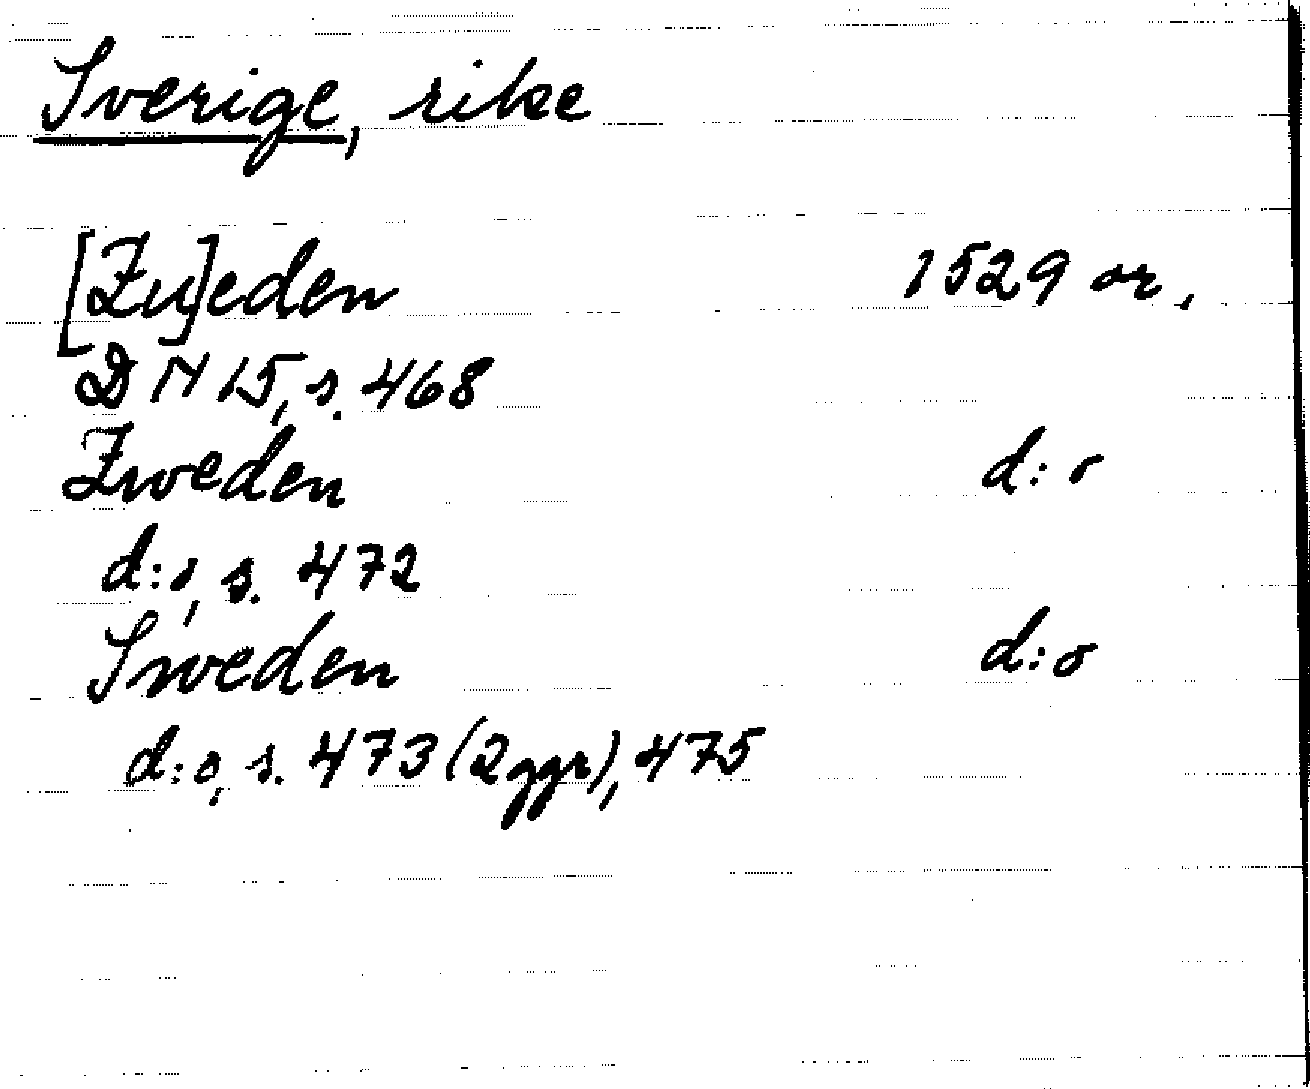 Sverige, rike
[Zu]eden 1529 or.
DN 15, s. 468
Zweden d:o
d:o, s. 472
Sweden d:o
d:o, s. 473 (2 ggr), 475